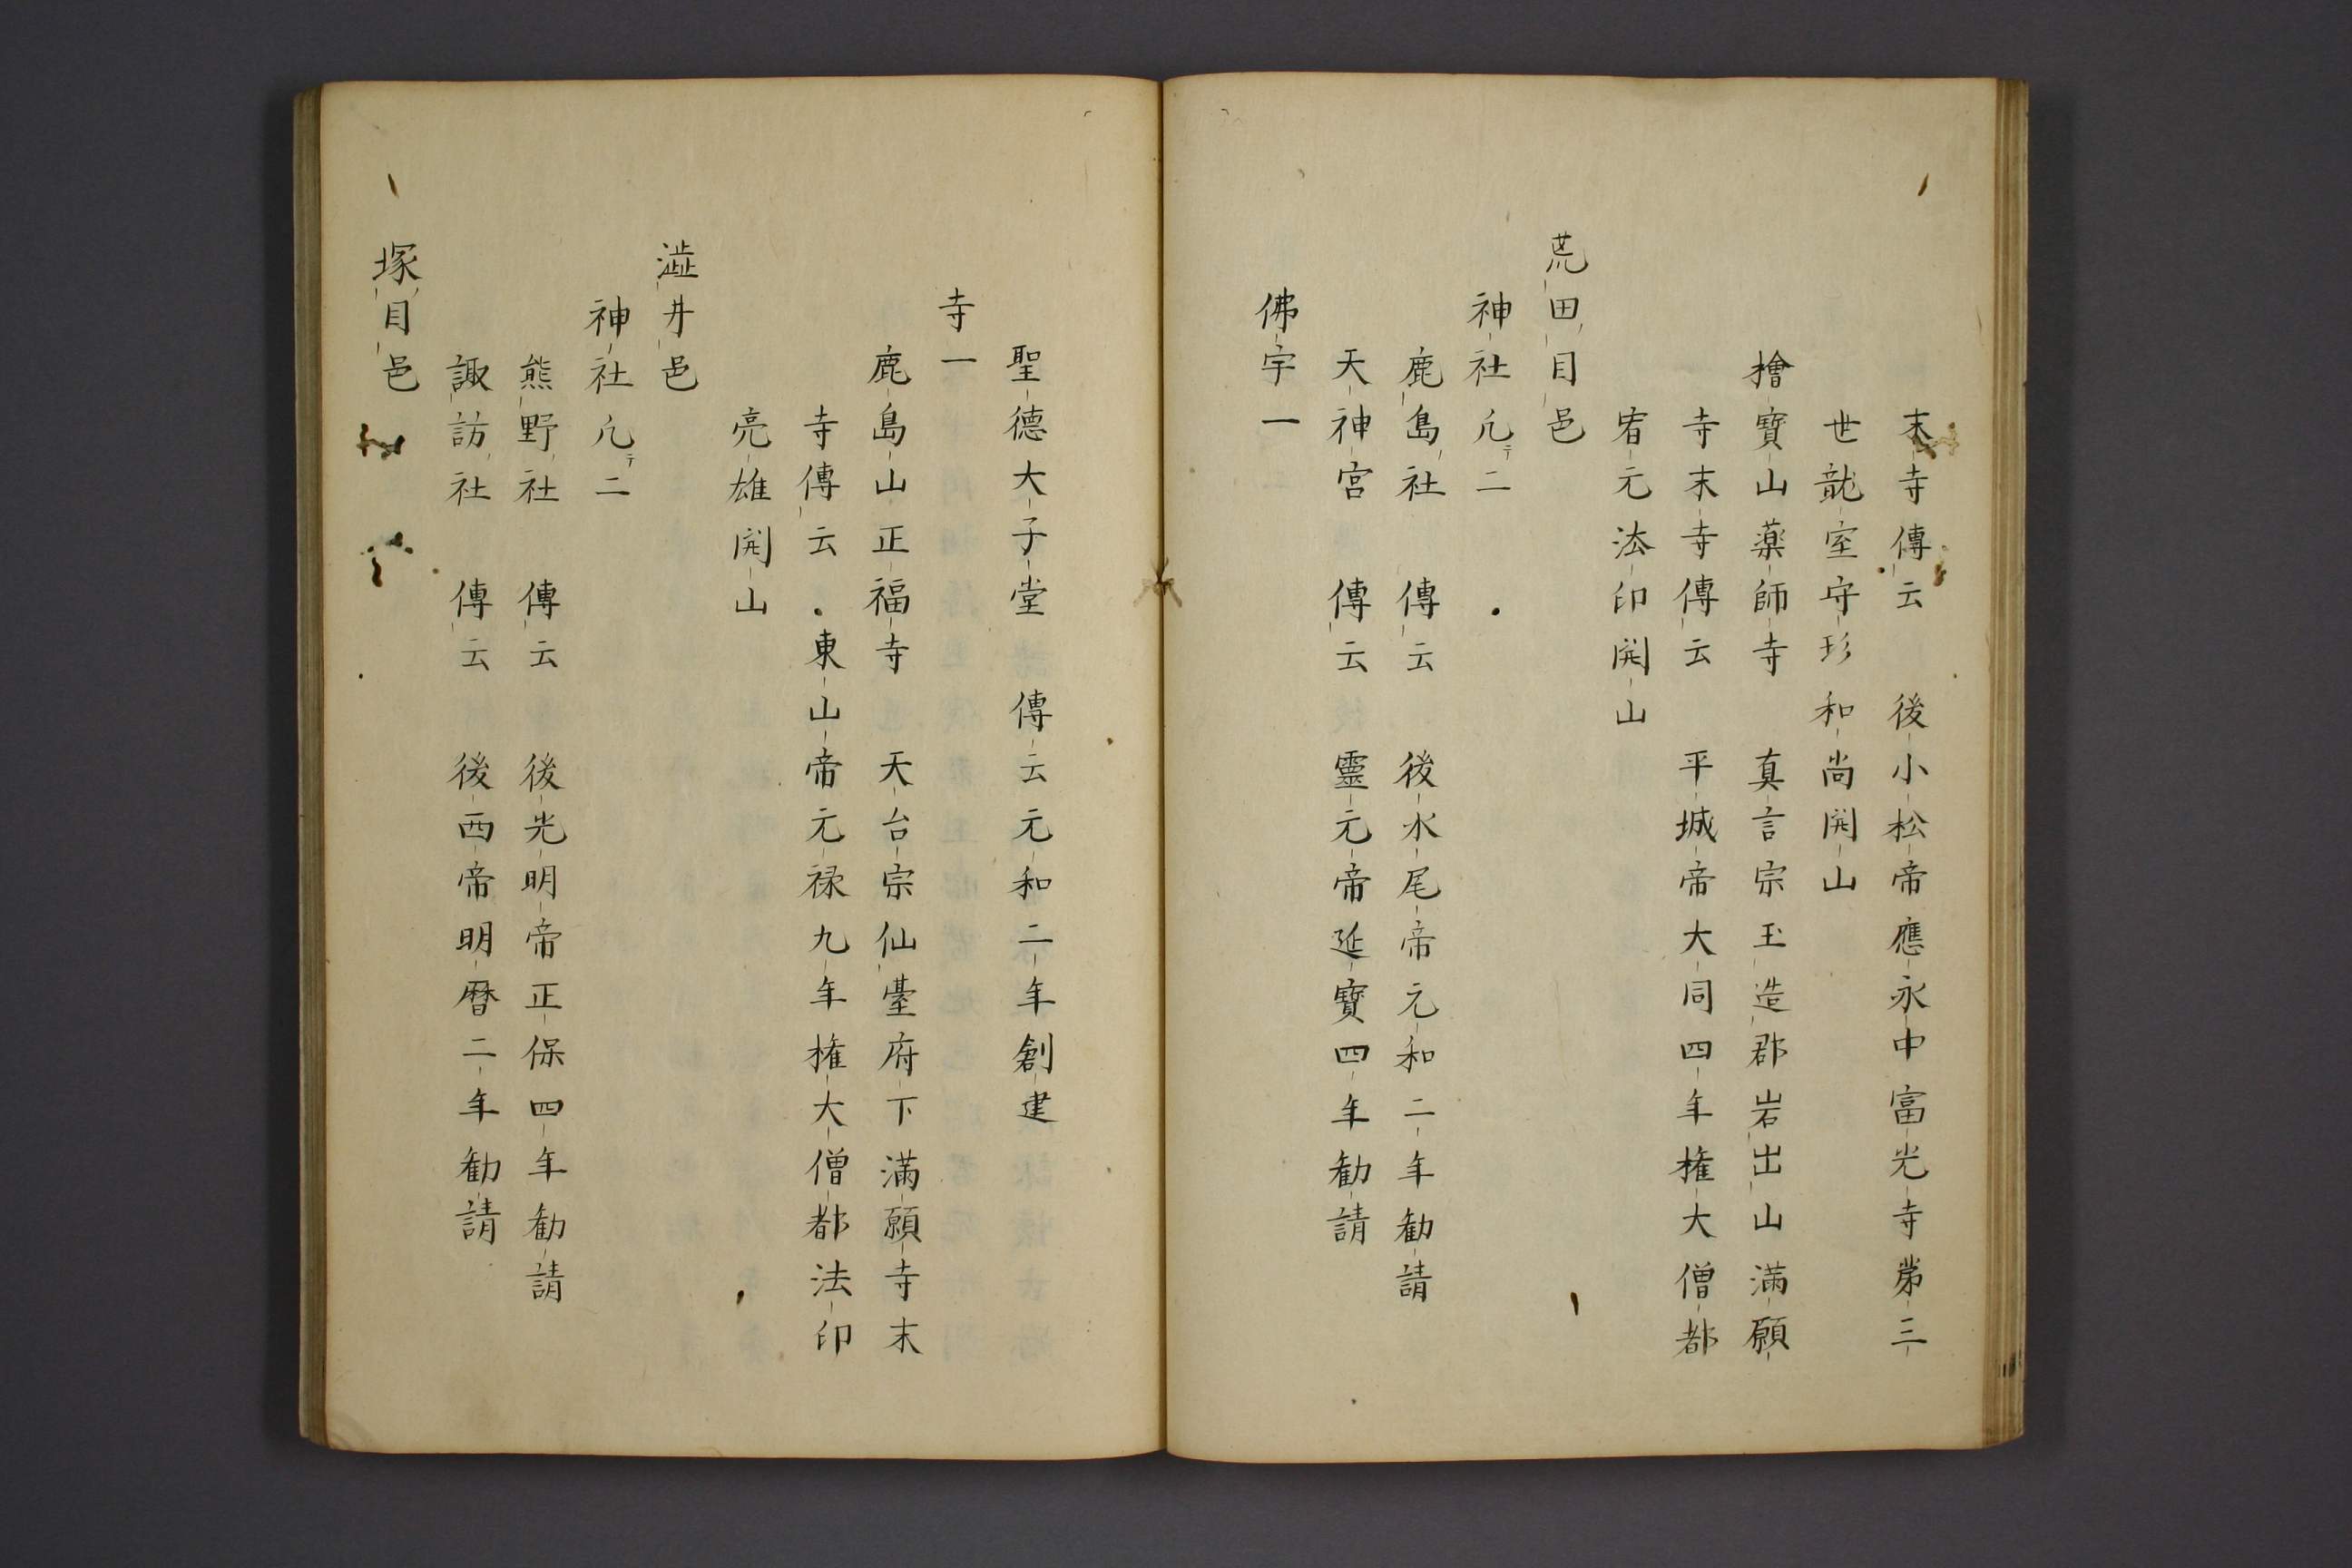 末寺傳云　後小松帝應永中富光寺第三
世龍室守珍和尚開山
檜寶山薬師寺　真言宗玉造郡岩出山満願
寺末寺傳云　平城帝大同四年権大僧都
宥元法印開山
荒田目邑
神社凡テ二
鹿島社　傳云　後水尾帝元和二年勧請
天神宮　傳云　靈元帝延寶四年勧請
佛宇一
聖德大子堂　傳云元和二年創建
寺一
鹿島山正福寺　天台宗仙臺府下満願寺末
寺傳云　東山帝元禄九年権大僧都法印
亮雄開山
澁井邑
神社凡テ二
熊野社　傳云　後光明帝正保四年勧請
諏訪社　傳云　後西帝明暦二年勧請
塚目邑